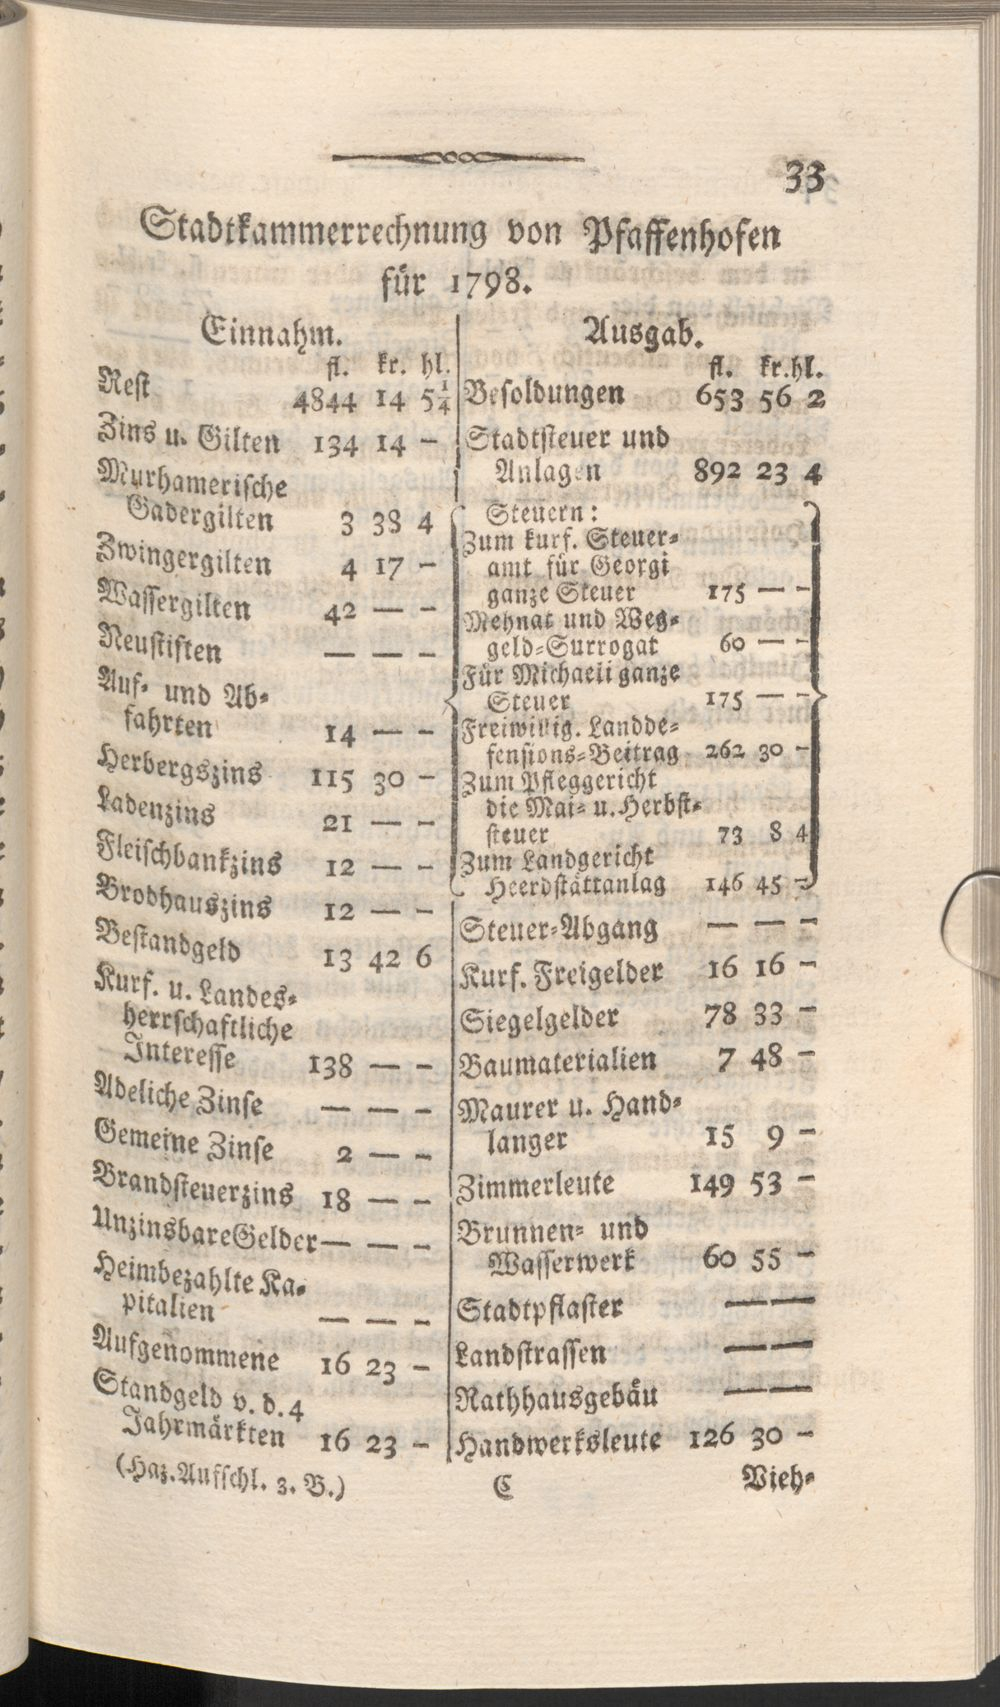 33
Stadtkammerrechnung von Pfaffenhofen
für 1798.
Einnahm.
fl. kr. hl.
Rest 4844 14 5¼
Zins u. Gilten 134 14 –
Murhamerische
Gadergilten 3 38 4
Zwingergilten 4 17 –
Wassergilten 42 — –
Neustiften — — –
Auf- und Ab-
fahrten 14 — –
Herbergszins 115 30 –
Ladenzins 21 — –
Fleischbankzins 12 — –
Brodhauszins 12 — –
Bestandgeld 13 42 6
Kurf. u. Landes-
herrschaftliche
Interesse 138 — –
Adeliche Zinse — — –
Gemeine Zinse 2 — –
Brandsteuerzins 18 — –
Unzinsbare Gelder — — –
Heimbezahlte Ka-
pitalien — — –
Aufgenommene 16 23 –
Standgeld v. d. 4
Jahrmärkten 16 23 –
Ausgab.
fl. kr. hl.
Besoldungen 653 56 2
Stadtsteuer und
Anlagen 892 23 4
Steuern:
Zum kurf. Steuer-
amt für Georgi
ganze Steuer 175 — –
Mehnat und Weg-
geld-Surrogat 60 — –
Für Michaeli ganze
Steuer 175 — –
Freiwillig. Landde-
fensions-Beitrag 262 30 –
Zum Pfleggericht
die Mai- u. Herbst-
steuer 73 8 4
Zum Landgericht
Heerdstättanlag 146 45 –
Steuer-Abgang — — –
Kurf. Freigelder 16 16 –
Siegelgelder 78 33 –
Baumaterialien 7 48 –
Maurer u. Hand-
langer 15 9 –
Zimmerleute 149 53 –
Brunnen- und
Wasserwerk 60 55 –
Stadtpflaster — —
Landstrassen — —
Rathhausgebäu — —
Handwerksleute 126 30 –
(Haz. Aufschl. z. B.) C Vieh-